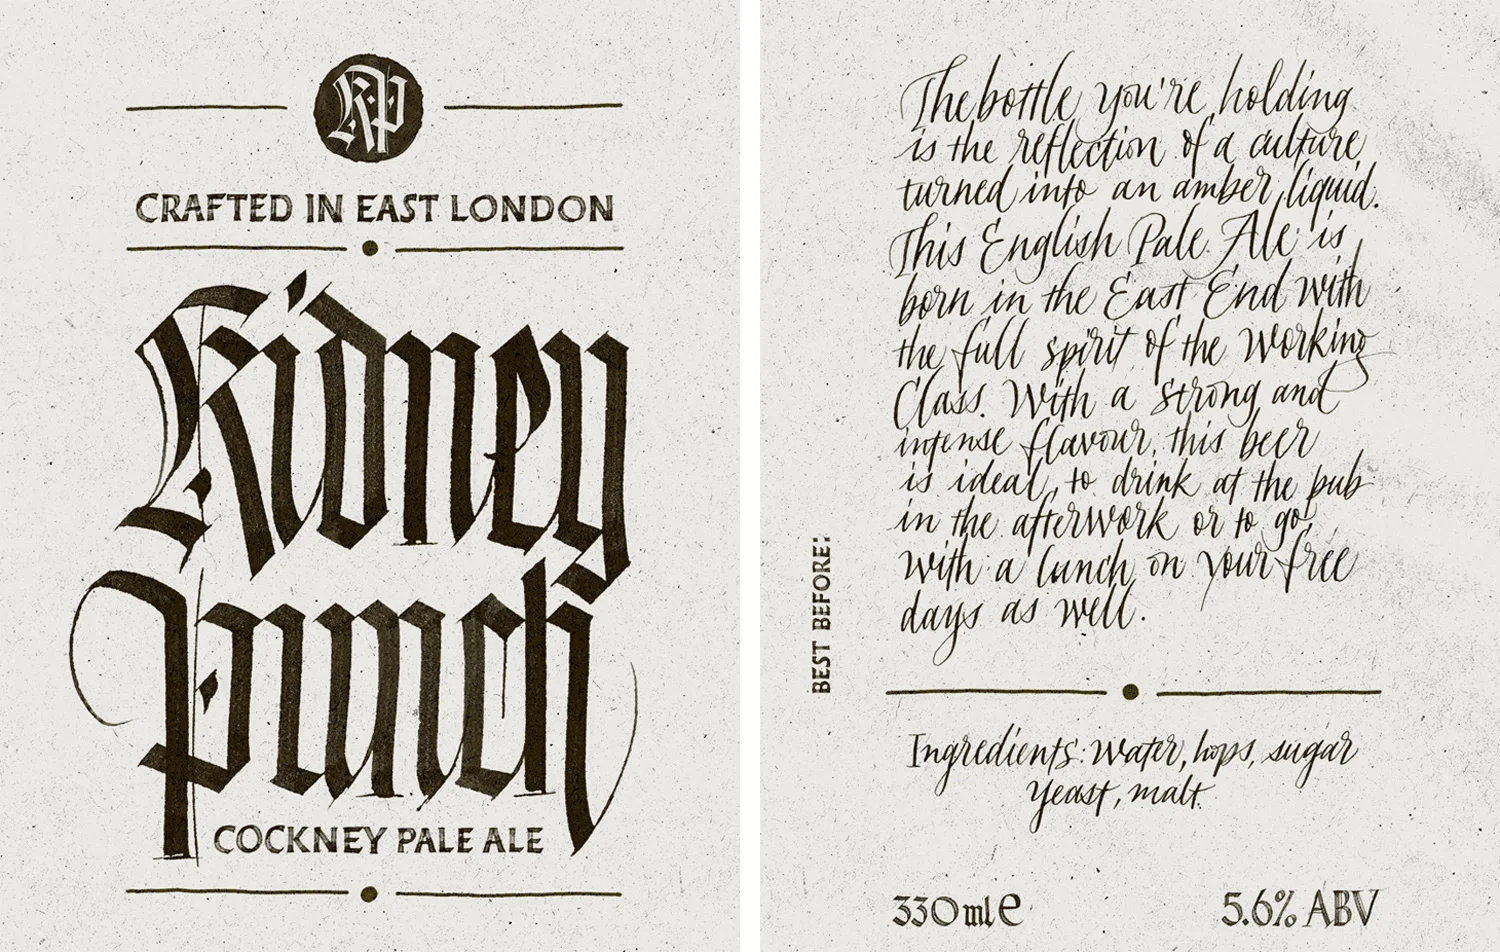 KP
CRAFTED IN EAST LONDON
Kidney
Punch
COCKNEY PALE ALE
The bottle you're holding
is the reflection of a culture
turned into an amber liquid.
This English Pale Ale is
born in the East End with
the full spirit of the Working
Class. With a strong and
intense flavour, this beer
is ideal to drink at the pub
in the afterwork or to go,
with a lunch on your free
days as well.
BEST BEFORE:
Ingredients: Water, hops, sugar
Yeast, malt.
330 ml e
5.6% ABV